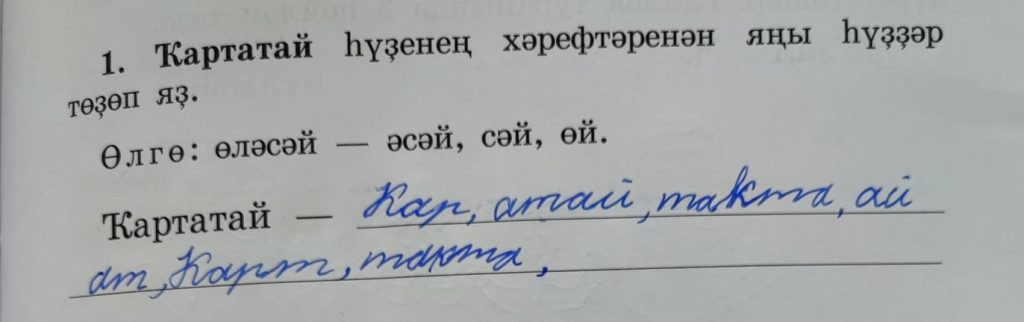 1. Ҡартатай һүҙенең хәрефтәренән яңы һүҙҙәр
төҙөп яҙ.
Өлгө: өләсәй — әсәй, сәй, өй.
Ҡартатай — Кар, атай, такта, ай
ат, Карт, такта,